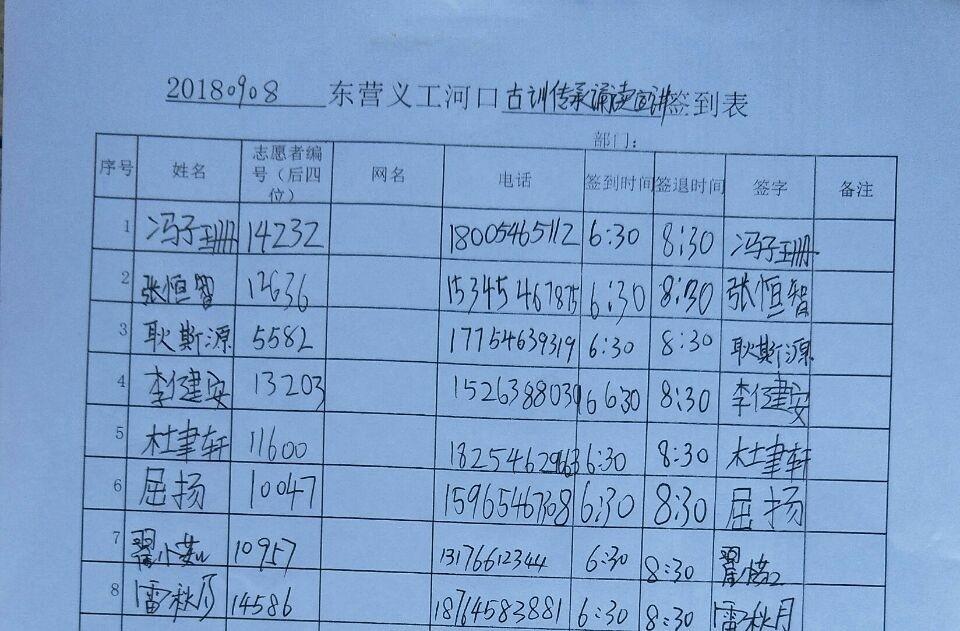 20180908 东营义工河口古训传承诵读宣讲签到表
部门：
序号 姓名 志愿者编号（后四位） 网名 电话 签到时间 签退时间 签字 备注
1 冯子珊 14232 18005465112 6:30 8:30 冯子珊
2 张恒智 12636 15345467875 6:30 8:30 张恒智
3 耿斯源 5582 17754639319 6:30 8:30 耿斯源
4 李健安 13203 6:30 8:30 李健安
5 杜聿轩 11600 6:30 8:30 杜聿轩
6 屈扬 10047 15965467308 6:30 8:30 屈扬
7 翟小 10957 13176612344 6:30 8:30 翟
8 雷秋月 14586 18764583881 6:30 8:30 雷秋月